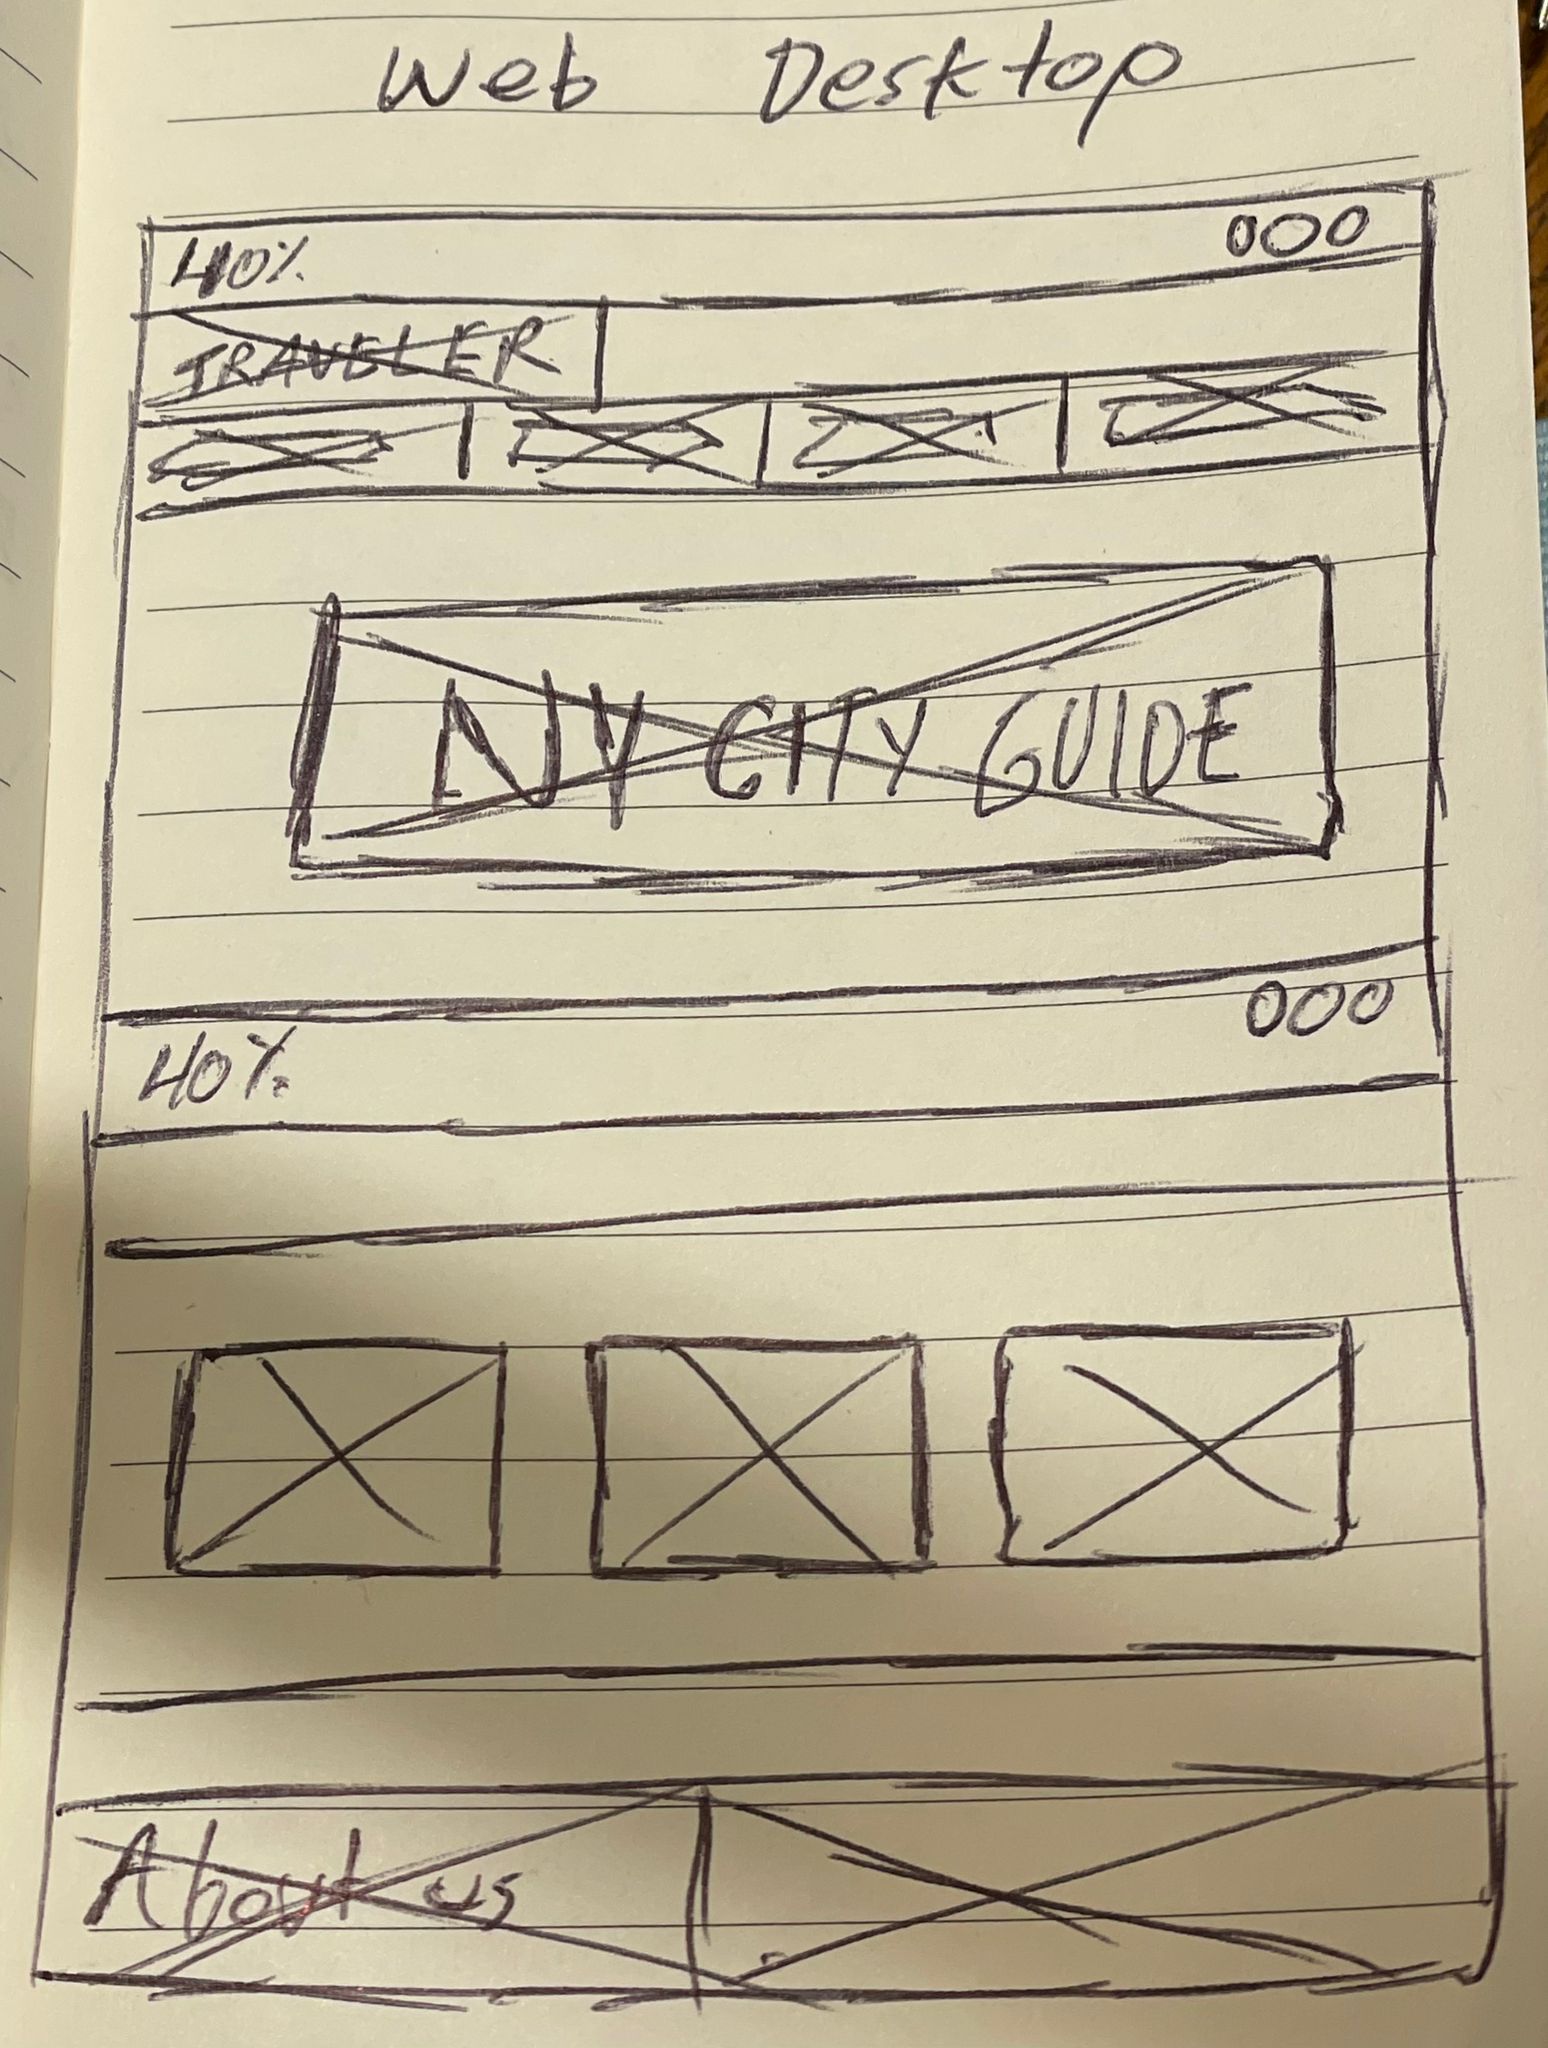 Web Desktop
40% 000
TRAVELER
NY CITY GUIDE
000
40%
About us